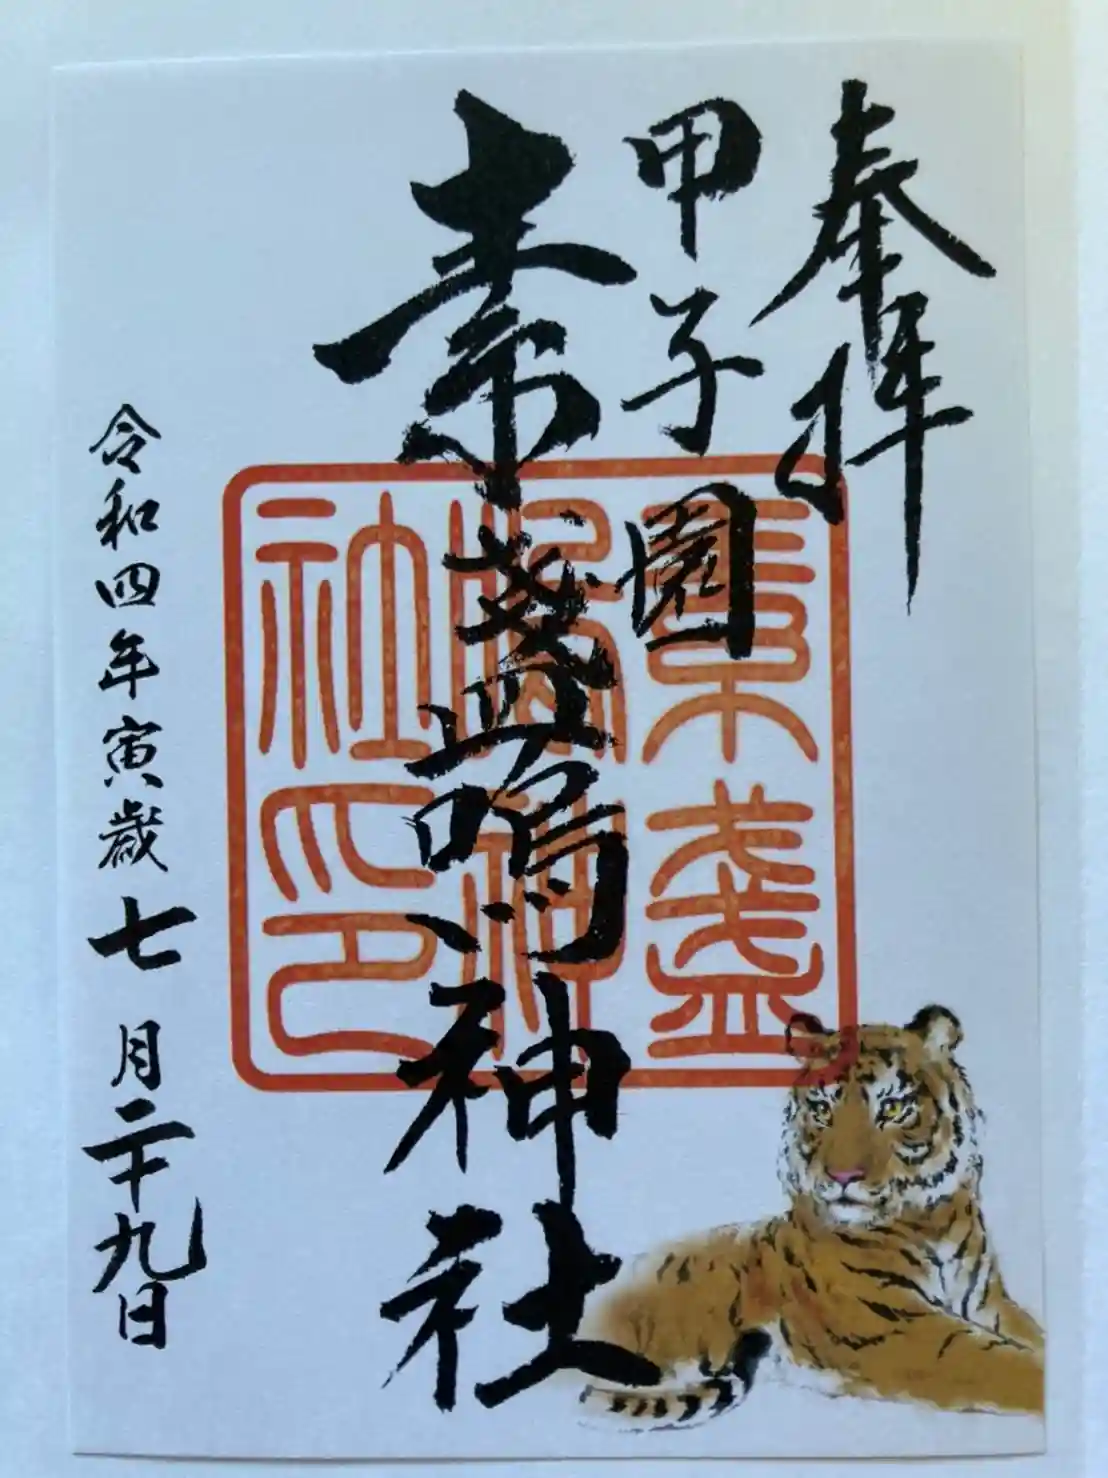 奉拝
甲子園
素盞嗚神社
素盞嗚神社印
令和四年寅歳七月二十九日